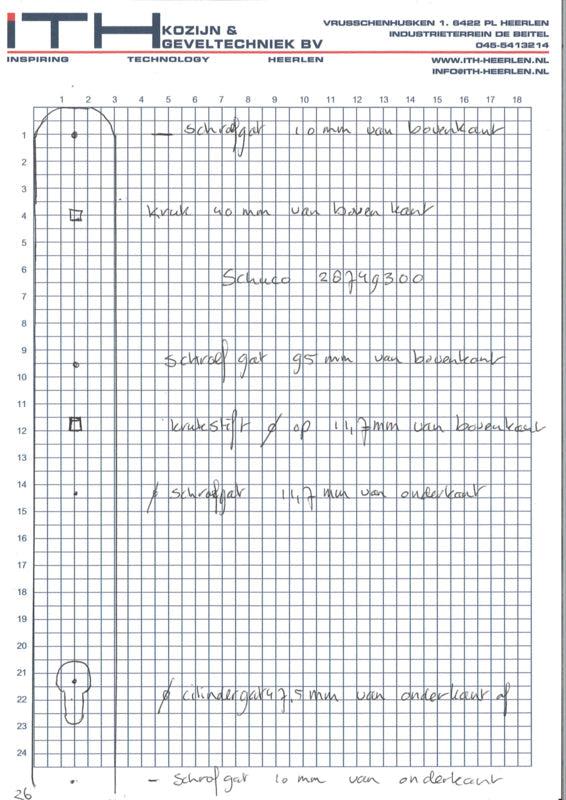 iTH KOZIJN &
GEVELTECHNIEK BV
VRUSSCHENHUSKEN 1. 6422 PL HEERLEN
INDUSTRIETERREIN DE BEITEL
045-5413214
INSPIRING TECHNOLOGY HEERLEN
WWW.ITH-HEERLEN.NL
INFO@ITH-HEERLEN.NL
1 2 3 4 5 6 7 8 9 10 11 12 13 14 15 16 17 18
1 — schroefgat 10 mm van bovenkant
2
3
4 kruk 40 mm van bovenkant
5
6 Schuco 28749300
7
8
9 schroef gat 95 mm van bovenkant
10
11
12 krukstift ø op 11,7mm van bovenkant
13
14 ø schroefgat 11,7 mm van onderkant
15
16
17
18
19
20
21
22 ø cilindergat 47,5 mm van onderkant af
23
24
– schroefgat 10 mm van onderkant
26